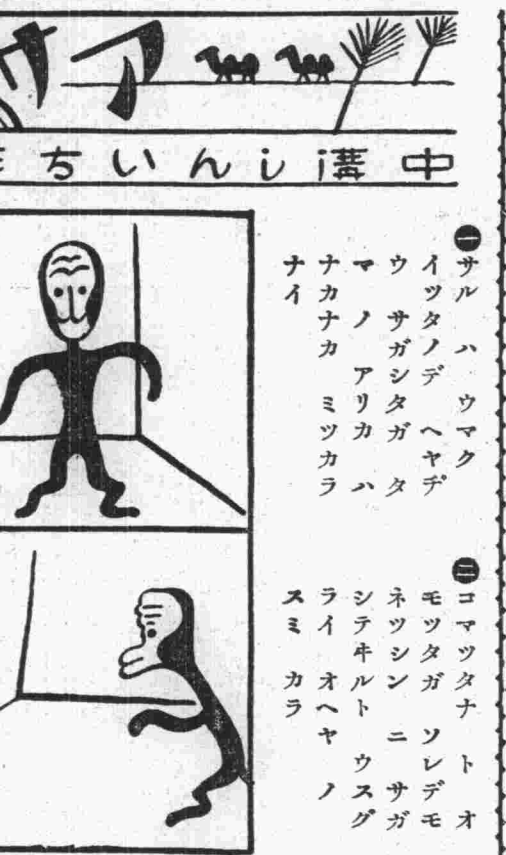 ア
中溝しんいち
一
サル ハ ウマク
イツタノデ ヘヤヂ
ウ サガシタガ タ
マ ノ アリカ ハ
ナカナカ ミツカラ
ナイ
二
コマツタナ ト オ
モツタガ ソレデモ
ネツシン ニ サガ
シテヰルト ウスグ
ライ オヘヤ ノ
スミ カラ